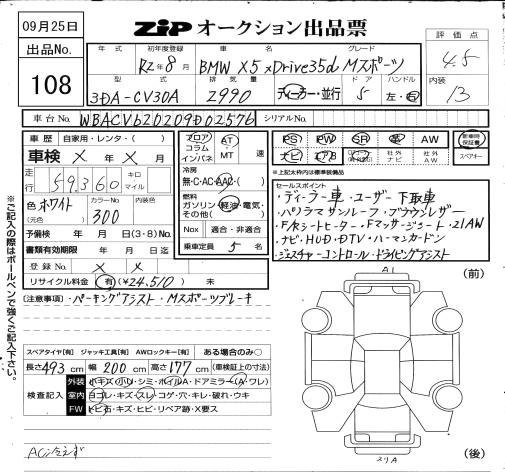 09月25日
ZIP オークション出品票
出品No. 108
評価点 4.5
内装 13
年式 初年度登録 車名 グレード
R2年8月 BMW X5 xDrive35d Mスポーツ
型式 排気量 ドア ハンドル
3DA-CV30A 2990 ディーラー・並行 5 左・右
車台No. WBACV620209D02576 シリアルNo.
車歴 自家用・レンタ・( )
車検 × 年 × 月
走行 59,360 キロ マイル
色 ホワイト (元色) カラーNo 300
予備検 年 月 日(3・8)No.
書類有効期限 年 月 日迄
登録No. × ×
リサイクル料金 有(¥24,510) 未
フロア コラム インパネ AT MT 速
冷房 無・C・AC・AAC・( )
燃料 ガソリン・軽油・電気・その他( )
Nox 適合・非適合
乗車定員 5 名
PS PW SR 革 AW 新車時保証書
ナビ エアB 社外ナビ 社外AW スペアキー
※上記太枠内は標準装備品
セールスポイント
・ディーラー車・ユーザー下取車
・パノラマサンルーフ・ブラウンレザー
・F/Rシートヒーター・Fマッサージシート・21AW
・ナビ・HUD・DTV・ハーマンカードン
・ジェスチャーコントロール・ドライビングアシスト
※ご記入の際はボールペンで強くご記入下さい。
(注意事項)・パーキングアシスト・Mスポーツブレーキ
スペアタイヤ[有] ジャッキ工具[有] AWロックキー[有] ある場合のみ○
長さ 493 cm 幅 200 cm 高さ 177 cm (車検証上の寸法)
検査記入
外装 小キズ・小U・シミ・ホイルA・ドアミラー(A・ワレ)
室内 ヨゴレ・キズ・スレ・コゲ・穴・キレ・破れ・ウキ
FW トビ石・キズ・ヒビ・リペア跡・X要ス
AC冷えず
A1
(前)
(後)